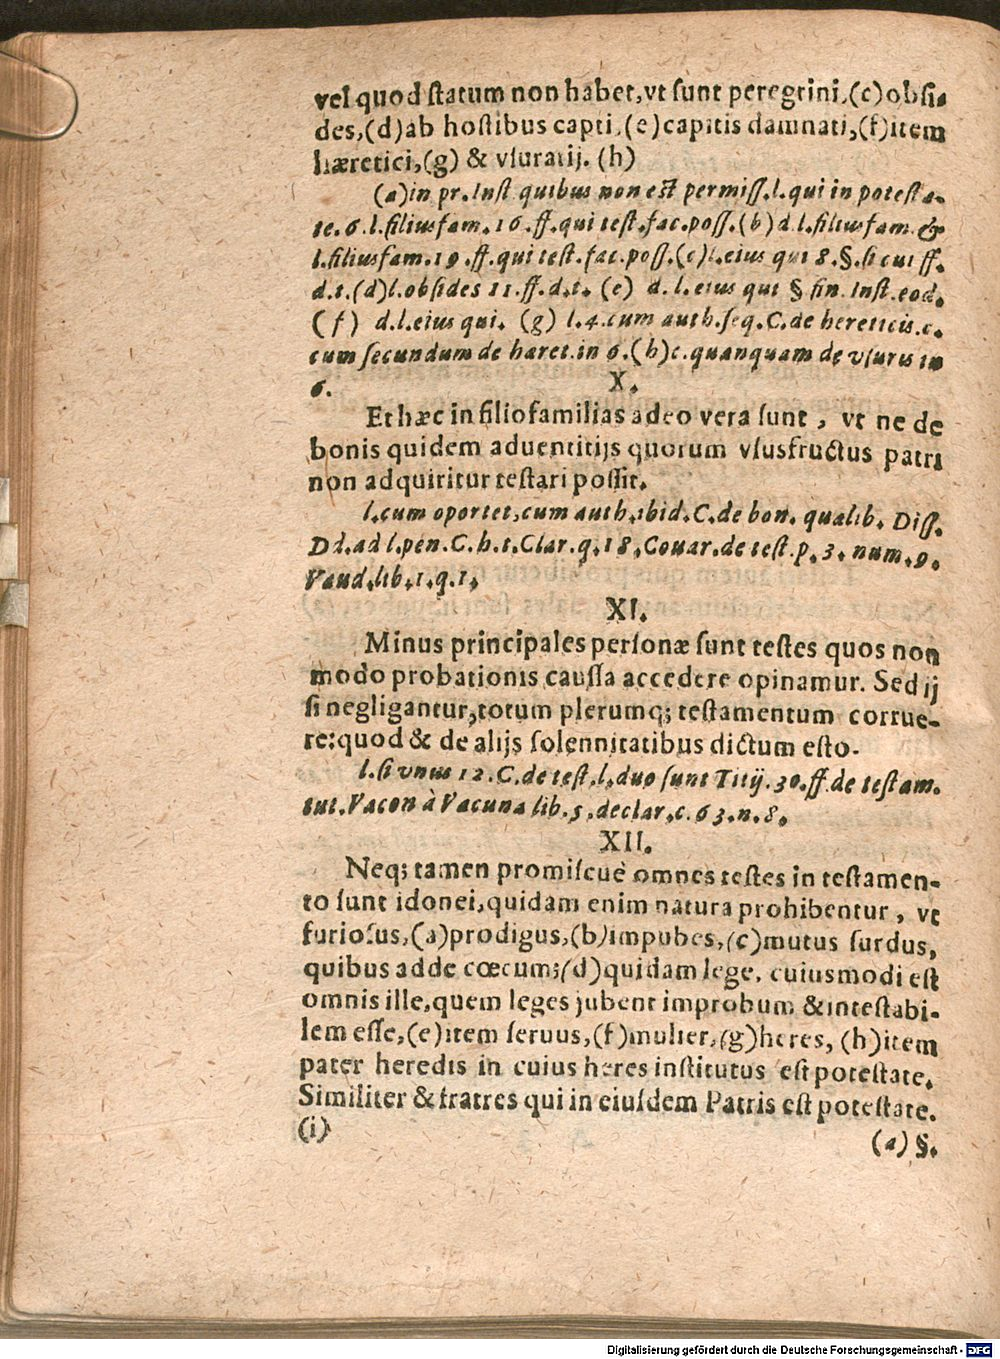 vel quod ſtatum non habet, vt ſunt peregrini, (c) obſi-
des, (d) ab hoſtibus capti, (e) capitis damnati, (f) item
hæretici, (g) & vſurarij. (h)
(a) in pr. Inſt quibus non eſt permiſſ. l. qui in poteſta-
te. 6. l. filiusfam. 16. ff. qui teſt. fac. poſſ. (b) d. l. filiusfam. &
l. filiusfam. 19. ff. qui teſt. fac. poſſ. (c) l. eius qui 8. §. ſi cui ff.
d. t. (d) l. obſides 11. ff. d. t. (e) d. l. eius qui § fin. Inſt. eod.
(f) d. l. eius qui. (g) l. 4. cum auth. ſeq. C. de hereticis. c.
cum ſecundum de haret. in 6. (h) c. quanquam de vſuris in
6.
X.
Et hæc in filiofamilias adeo vera ſunt, vt ne de
bonis quidem aduentitijs quorum vſusfructus patri
non adquiritur teſtari poſſit.
l. cum oportet, cum auth. ibid. C. de bon. qualib. Diſſ.
Dd. ad l. pen. C. h. t. Clar. q. 18. Couar. de teſt. p. 3. num. 9.
Vaud. lib. 1. q. 1.
XI.
Minus principales perſonæ ſunt teſtes quos non
modo probationis cauſſa accedere opinamur. Sed ij
ſi negligantur, totum plerumq; teſtamentum corrue-
re: quod & de alijs ſolennitatibus dictum eſto.
l. ſi vnus 12. C. de teſt. l. duo ſunt Titij. 30. ff. de teſtam.
tut. Vacon à Vacuna lib. 5. declar. c. 63. n. 8.
XII.
Neq; tamen promiſcuè omnes teſtes in teſtamen-
to ſunt idonei, quidam enim natura prohibentur, vt
furioſus, (a) prodigus, (b) impubes, (c) mutus ſurdus,
quibus adde cœcum; (d) quidam lege, cuiusmodi eſt
omnis ille, quem leges jubent improbum & inteſtabi-
lem eſſe, (e) item ſeruus, (f) mulier, (g) heres, (h) item
pater heredis in cuius heres inſtitutus eſt poteſtate.
Similiter & fratres qui in eiuſdem Patris eſt poteſtate.
(i)
(a) §.
Digitalisierung gefördert durch die Deutsche Forschungsgemeinschaft - DFG